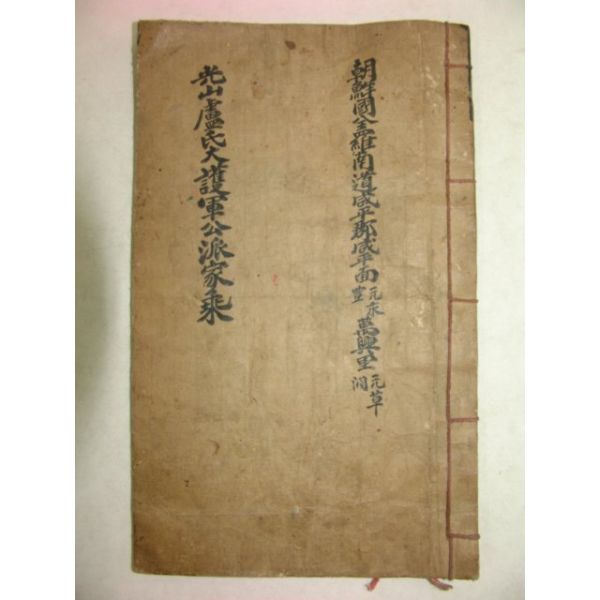 朝鮮國全羅南道咸平郡咸平面
元
萬興里
元草
光山盧氏大護軍公派家乘